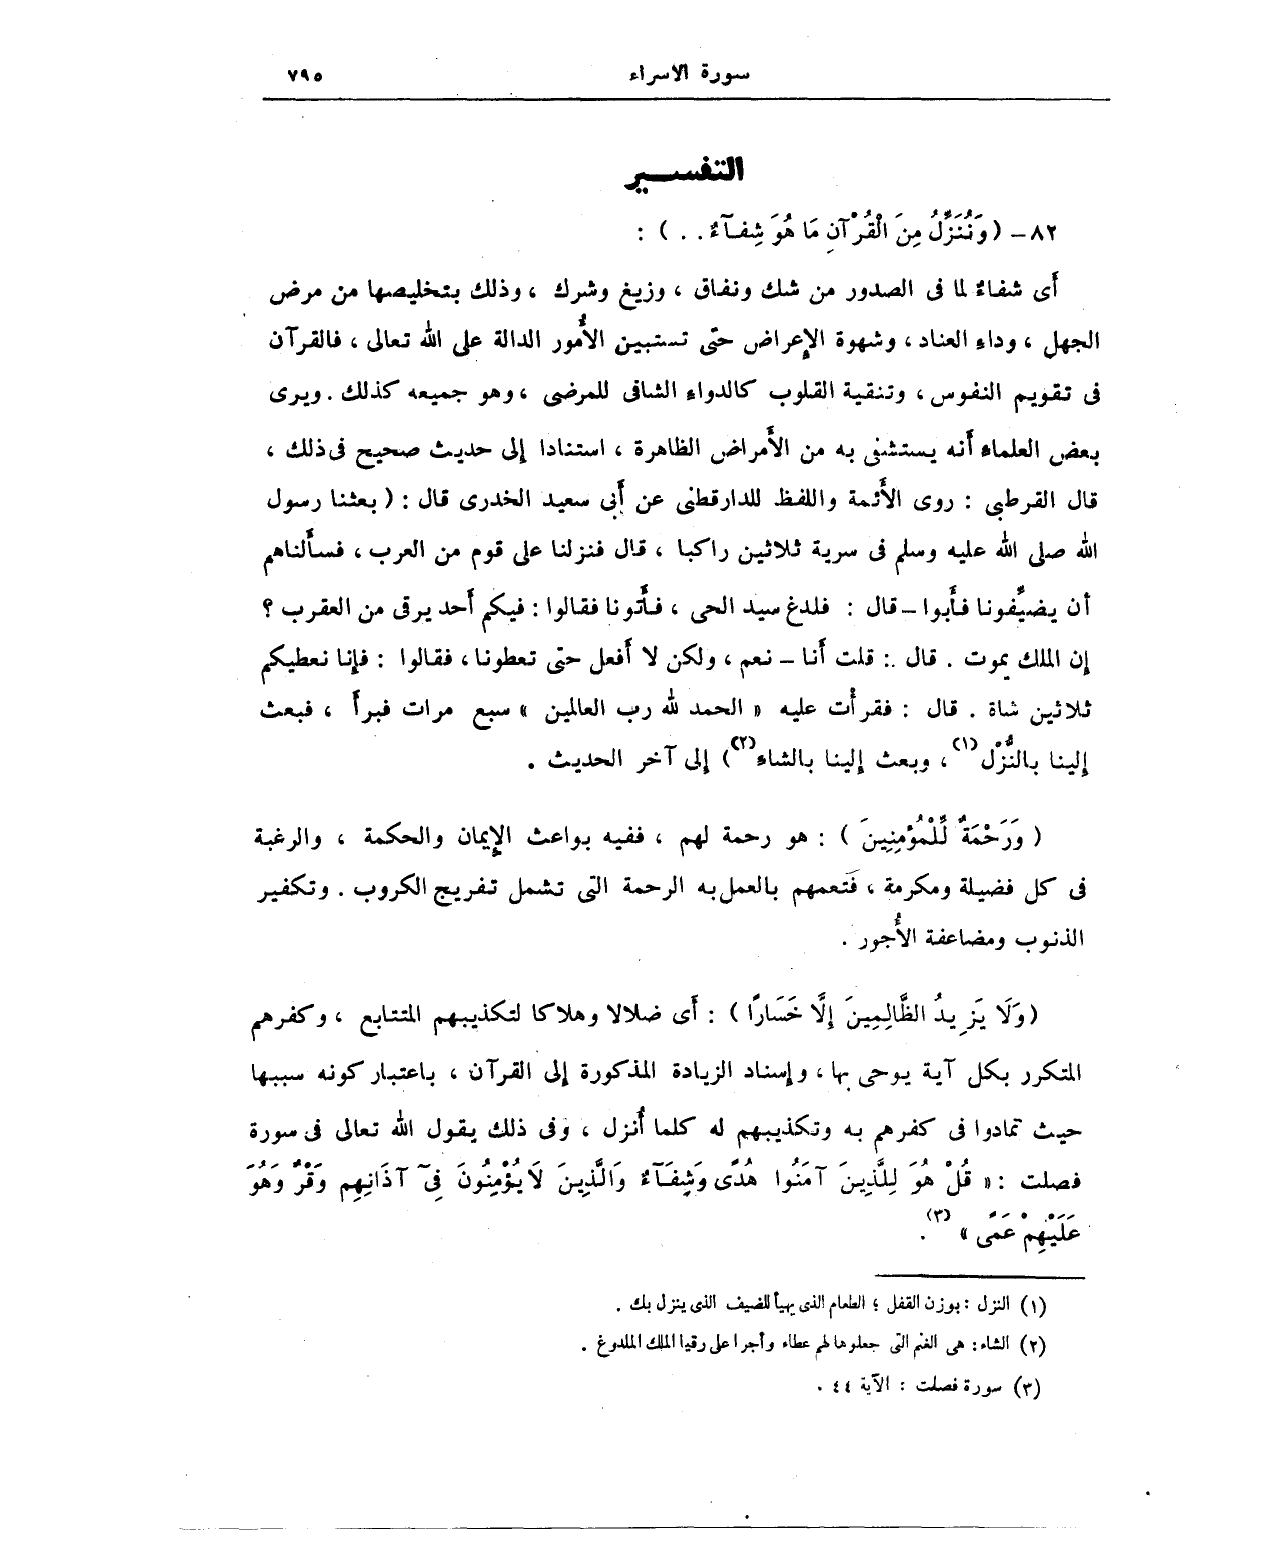 سورة الاسراء ٧٩٥
التفسير
٨٢ - ( وَنُنَزِّلُ مِنَ الْقُرْآنِ مَا هُوَ شِفَآءٌ . . ) :
أى شفاءٌ لما فى الصدور من شك ونفاق ، وزيغ وشرك ، وذلك بتخليصها من مرض
الجهل ، وداء العناد ، وشهوة الإعراض حتى تستبين الأُمور الدالة على الله تعالى ، فالقرآن
فى تقويم النفوس ، وتنقية القلوب كالدواء الشافى للمرضى ، وهو جميعه كذلك . ويرى
بعض العلماء أنه يستشفى به من الأَمراض الظاهرة ، استنادا إلى حديث صحيح فى ذلك ،
قال القرطبى : روى الأَئمة واللفظ للدارقطنى عن أَبى سعيد الخدرى قال : ( بعثنا رسول
الله صلى الله عليه وسلم فى سرية ثلاثين راكبا ، قال فنزلنا على قوم من العرب ، فسأَلناهم
أن يضيِّفونا فأَبوا - قال : فلدغ سيد الحى ، فأَتونا فقالوا : فيكم أَحد يرقى من العقرب ؟
إن الملك يموت . قال : قلت أَنا - نعم ، ولكن لا أَفعل حتى تعطونا ، فقالوا : فإنا نعطيكم
ثلاثين شاة . قال : فقرأْت عليه « الحمد لله رب العالمين » سبع مرات فبرأَ ، فبعث
إلينا بالنُّزْل (١) ، وبعث إلينا بالشاء (٢) ) إلى آخر الحديث .
( وَرَحْمَةٌ لِّلْمُؤْمِنِينَ ) : هو رحمة لهم ، ففيه بواعث الإيمان والحكمة ، والرغبة
فى كل فضيلة ومكرمة ، فَتعمهم بالعمل به الرحمة التى تشمل تفريج الكروب . وتكفير
الذنوب ومضاعفة الأُجور .
( وَلَا يَزِيدُ الظَّالِمِينَ إِلَّا خَسَارًا ) : أَى ضلالا وهلاكا لتكذيبهم المتتابع ، وكفرهم
المتكرر بكل آية يوحى بها ، وإسناد الزيادة المذكورة إلى القرآن ، باعتبار كونه سببها
حيث تمادوا فى كفرهم به وتكذيبهم له كلما أُنزل ، وفى ذلك يقول الله تعالى فى سورة
فصلت : « قُلْ هُوَ لِلَّذِينَ آمَنُوا هُدًى وَشِفَآءٌ وَالَّذِينَ لَا يُؤْمِنُونَ فِىٓ آذَانِهِم وَقْرٌ وَهُوَ
عَلَيْهِمْ عَمًى » (٣) .
(١) النزل : بوزن القفل ؛ الطعام الذى يهيأ للضيف الذى ينزل بك .
(٢) الشاء : هى الغنم التى جعلوها لهم عطاء وأجرا على رقيا الملك الملدوغ .
(٣) سورة فصلت : الآية ٤٤ .